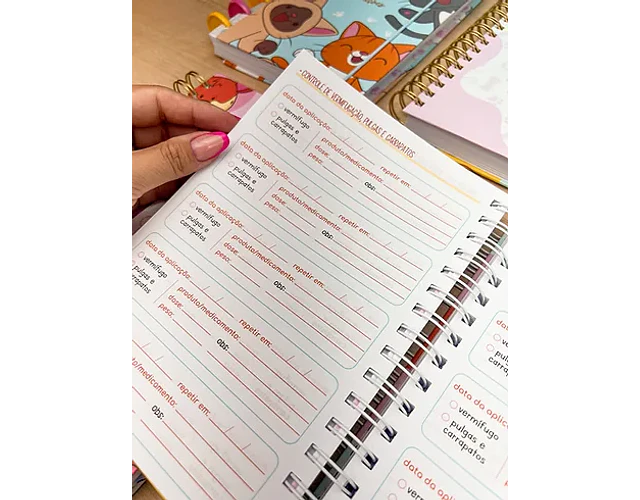 - CONTROLE DE VERMIFUGAÇÃO, PULGAS E CARRAPATOS
data da aplicação: / /
vermífugo
pulgas e
carrapatos
produto/medicamento:
dose:
peso:
repetir em: / /
obs:
data da aplicação: / /
vermífugo
pulgas e
carrapatos
produto/medicamento:
dose:
peso:
repetir em: / /
obs:
data da aplicação: / /
vermífugo
pulgas e
carrapatos
produto/medicamento:
dose:
peso:
repetir em: / /
obs:
data da aplicação: / /
vermífugo
pulgas e
carrapatos
produto/medicamento:
dose:
peso:
repetir em: / /
obs:
to/medicamento:
repetir em: / /
obs:
data
pul
data da aplica
vermífugo
pulgas e
carrapatos
data da aplic